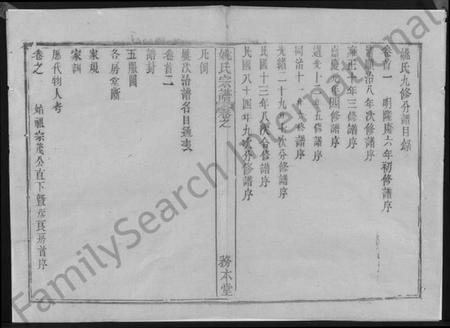 姚氏九修分譜目錄
卷首一
明隆慶六年初修譜序
順治八年次修譜序
雍正九年三修譜序
嘉慶 四修譜序
道光十 五修譜序
同治十一年 修譜序
光緒二十九年 次分修譜序
民國十三年八次合修譜序
民國八十四年九次分修譜序
姚氏宗譜
卷之
務本堂
凡例
屢次治譜名目通表
卷首二
譜封
五服圖
各房堂斷
家規
家訓
歷代物人考
卷之
始祖宗茂公直下暨彥良房首序
FamilySearch International